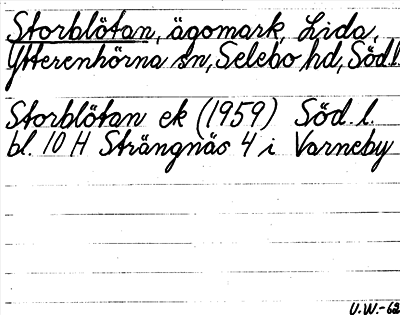 Storblötan, ägomark, Lida,
Ytterenhörna sn, Selebo hd, Söd.l.
Storblötan ek (1959) Söd. l.
bl. 10 H Strängnäs 4 i Varneby
U.W.-62